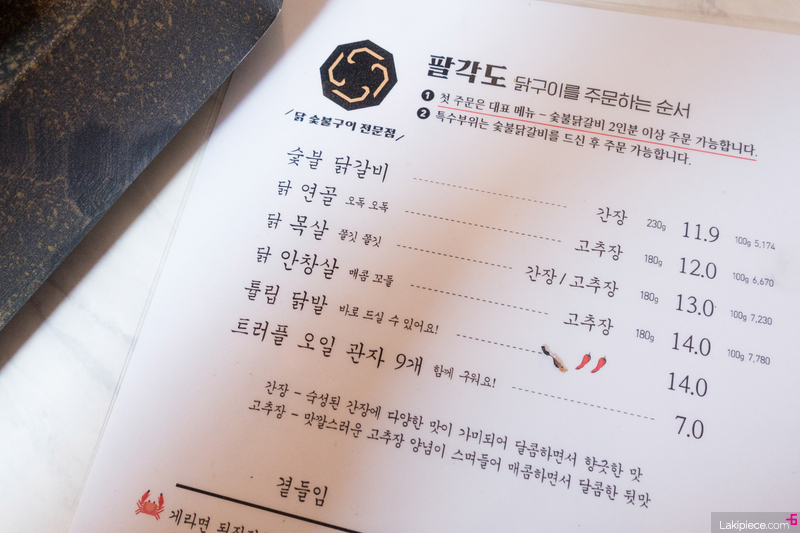 팔각도 닭구이를 주문하는 순서
❶ 첫 주문은 대표 메뉴 – 숯불닭갈비 2인분 이상 주문 가능합니다.
❷ 특수부위는 숯불닭갈비를 드신 후 주문 가능합니다.
닭 숯불구이 전문점
숯불 닭갈비 간장 230g 11.9 100g 5,174
닭 연골 오독 오독 고추장 180g 12.0 100g 6,670
닭 목살 쫄깃 쫄깃 간장/고추장 180g 13.0 100g 7,230
닭 안창살 매콤 꼬들 고추장 180g 14.0 100g 7,780
튤립 닭발 바로 드실 수 있어요! 14.0
트러플 오일 관자 9개 함께 구워요! 7.0
간장 – 숙성된 간장에 다양한 맛이 가미되어 달콤하면서 향긋한 맛
고추장 – 맛깔스러운 고추장 양념이 스며들어 매콤하면서 달콤한 뒷맛
곁들임
게라면
Lakipiece.com